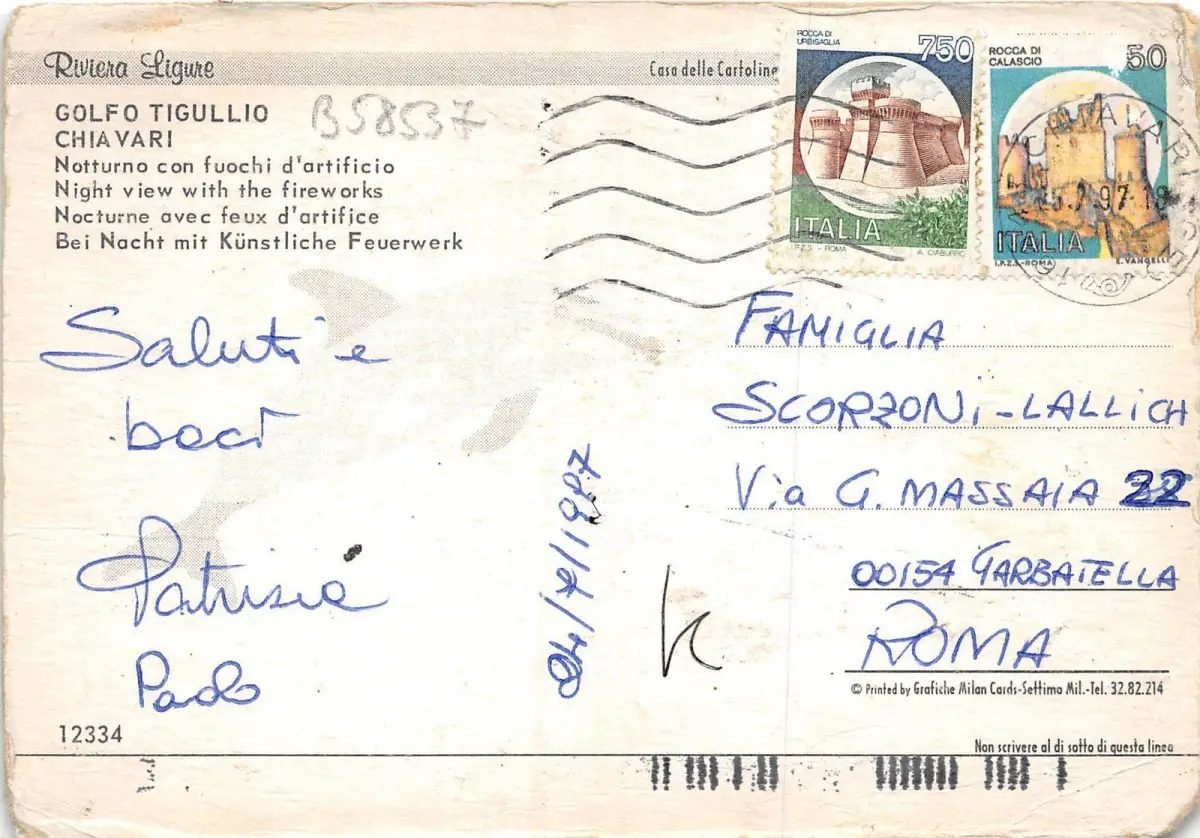 Riviera Ligure
Casa delle Cartoline
GOLFO TIGULLIO
CHIAVARI
Notturno con fuochi d'artificio
Night view with the fireworks
Nocturne avec feux d'artifice
Bei Nacht mit Künstliche Feuerwerk
B58537
ROCCA DI
URBISAGLIA
750
ITALIA
I.P.Z.S. - ROMA
A. CIABURRO
ROCCA DI
CALASCIO
50
ITALIA
I.P.Z.S.-ROMA
E. VANGELLI
Saluti e
baci
Patrizia
Paolo
24/7/1997
FAMIGLIA
SCORZONi-LALLiCH
Via G. MASSAIA 22
00154 GARBATELLA
ROMA
© Printed by Grafiche Milan Cards-Settimo Mil.-Tel. 32.82.214
12334
Non scrivere al di sotto di questa linea